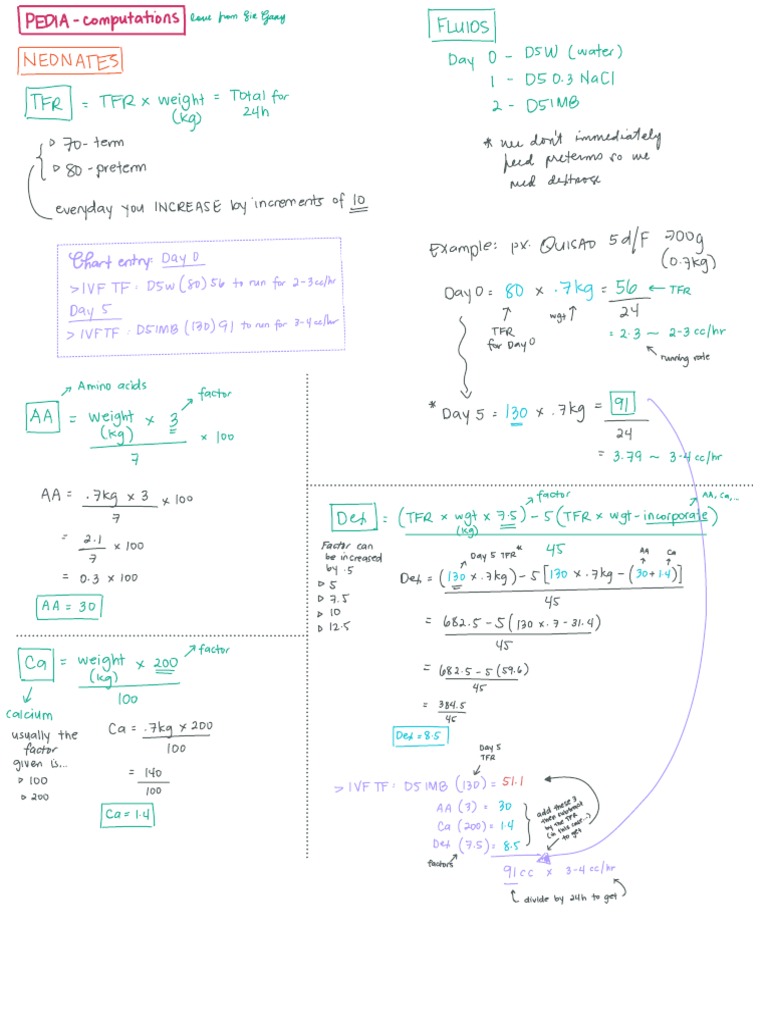 PEDIA - computations
NEONATES
TFR = TFR x weight (kg) = Total for 24h
▹ 70 - term
▹ 80 - preterm
everyday you INCREASE by increments of 10
Chart entry: Day 0
> IVF TF : D5W (80) 56 to run for 2-3cc/hr
Day 5
> IVFTF : D5IMB (130) 91 to run for 3-4cc/hr
FLUIDS
Day 0 - D5W (water)
1 - D5 0.3 NaCl
2 - D5IMB
* we don't immediately
feed preterms so we
need dextrose
Example: px. QUISAO 5d/F 700g
(0.7kg)
Day 0 = 80 x .7kg = 56 ← TFR
24
TFR for Day 0
wgt
= 2.3 ~ 2-3 cc/hr
running rate
* Day 5 = 130 x .7kg = 91
24
= 3.79 ~ 3-4 cc/hr
Amino acids
factor
AA = weight (kg) x 3 x 100
7
AA = .7kg x 3 x 100
7
= 2.1 x 100
7
= 0.3 x 100
AA = 30
factor
Ca = weight (kg) x 200
100
calcium
usually the
factor
given is...
▹ 100
▹ 200
Ca = .7kg x 200
100
= 140
100
Ca = 1.4
factor
AA, Ca,...
Dex = (TFR x wgt (kg) x 7.5) - 5 (TFR x wgt - incorporate)
45
Factor can
be increased
by .5
▹ 5
▹ 7.5
▹ 10
▹ 12.5
Day 5 TFR*
AA
Ca
Dex = (130 x .7kg) - 5 [130 x .7kg - (30 + 1.4)]
45
= 682.5 - 5 (130 x .7 - 31.4)
45
= 682.5 - 5 (59.6)
45
= 384.5
45
Dex = 8.5
Day 5
TFR
> IVF TF : D5IMB (130) = 51.1
AA (7) = 30
Ca (200) = 1.4
Dex (7.5) = 8.5
factors
add these 3
then subtract
by the TFR
(in this case...)
to get
91cc x 3-4 cc/hr
divide by 24h to get